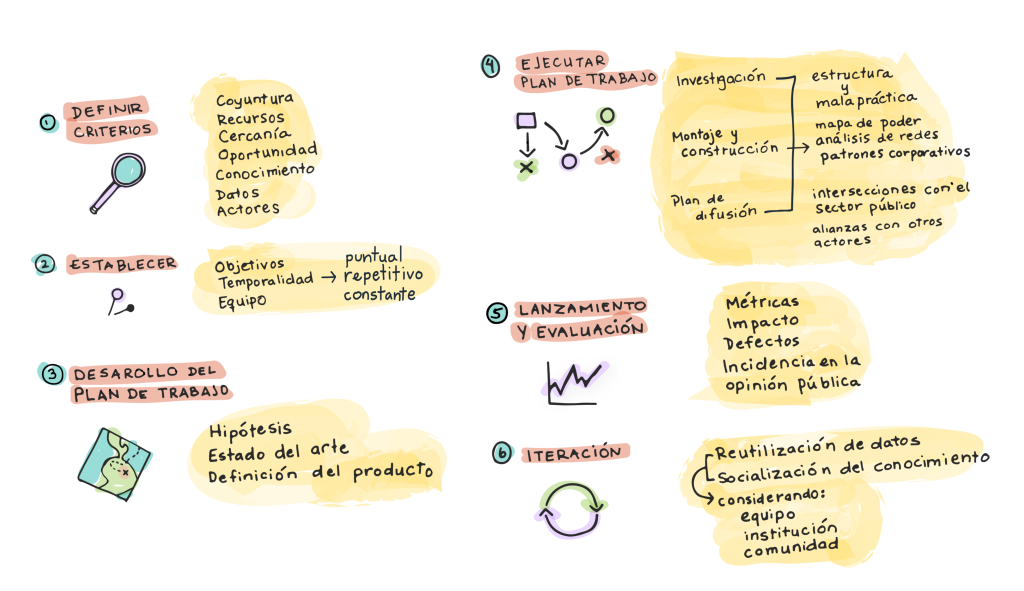 1 DEFINIR
CRITERIOS
Coyuntura
Recursos
Cercanía
Oportunidad
Conocimiento
Datos
Actores
2 ESTABLECER
Objetivos
Temporalidad →
Equipo
puntual
repetitivo
constante
3 DESAROLLO DEL
PLAN DE TRABAJO
Hipótesis
Estado del arte
Definición del producto
4 EJECUTAR
PLAN DE TRABAJO
Investigación
Montaje y
construcción
Plan de
difusión
estructura
y
mala práctica
mapa de poder
análisis de redes
patrones corporativos
intersecciones con el
sector público
alianzas con otros
actores
5 LANZAMIENTO
Y EVALUACIÓN
Métricas
Impacto
Defectos
Incidencia en la
opinión pública
6 ITERACIÓN
Reutilización de datos
Socialización del conocimiento
considerando:
equipo
institución
comunidad